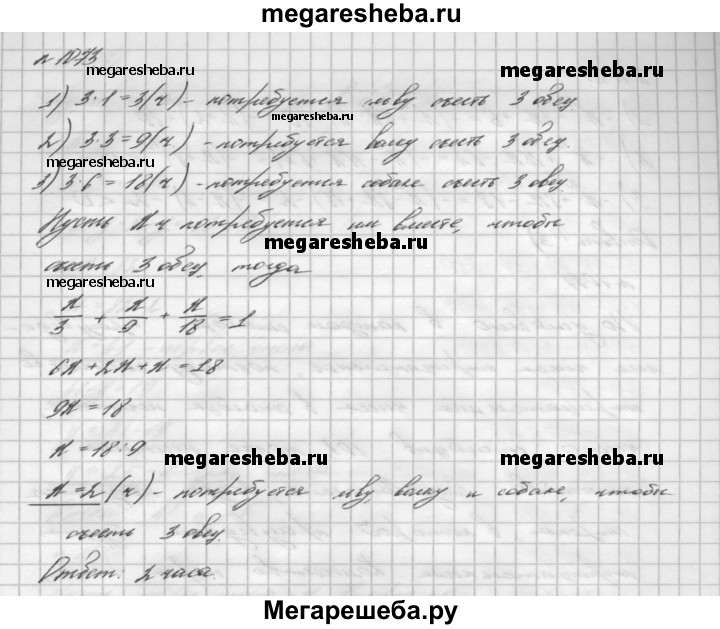 megaresheba.ru
№ 1073
megaresheba.ru megaresheba.ru
1) 3·1=3(ч) - потребуется льву съесть 3 овец
megaresheba.ru
2) 3·3=9(ч) - потребуется волку съесть 3 овец.
megaresheba.ru
3) 3·6=18(ч) - потребуется собаке съесть 3 овец
Пусть x ч потребуется им вместе, чтобы
megaresheba.ru
съесть 3 овец, тогда
megaresheba.ru
x/3 + x/9 + x/18 = 1
6x+2x+x=18
9x=18
x=18:9
megaresheba.ru megaresheba.ru
x=2 (ч) - потребуется льву, волку и собаке, чтобы
съесть 3 овец.
megaresheba.ru megaresheba.ru
Ответ: 2 часа.
Мегарешеба.ру